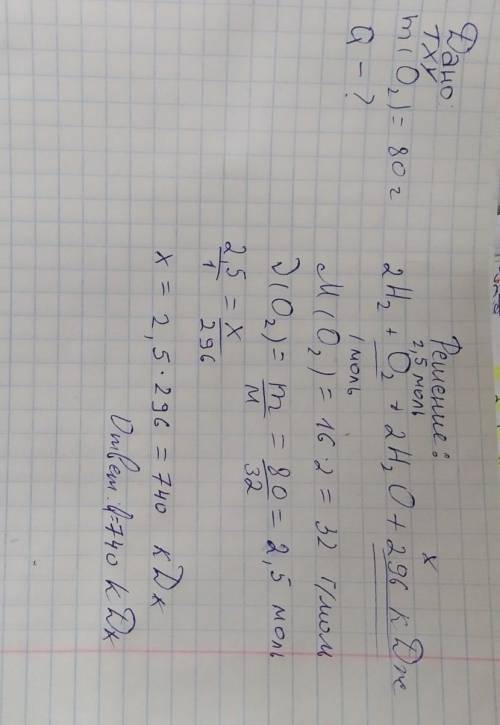 Дано:
ТХУ
m(O₂) = 80 г
Q - ?
Решение:
2,5 моль x
2H₂ + O₂ → 2H₂O + 296 кДж
1 моль
M(O₂) = 16·2 = 32 г/моль
ν(O₂) = m/M = 80/32 = 2,5 моль
2,5/1 = x/296
x = 2,5·296 = 740 кДж
Ответ: Q=740 кДж